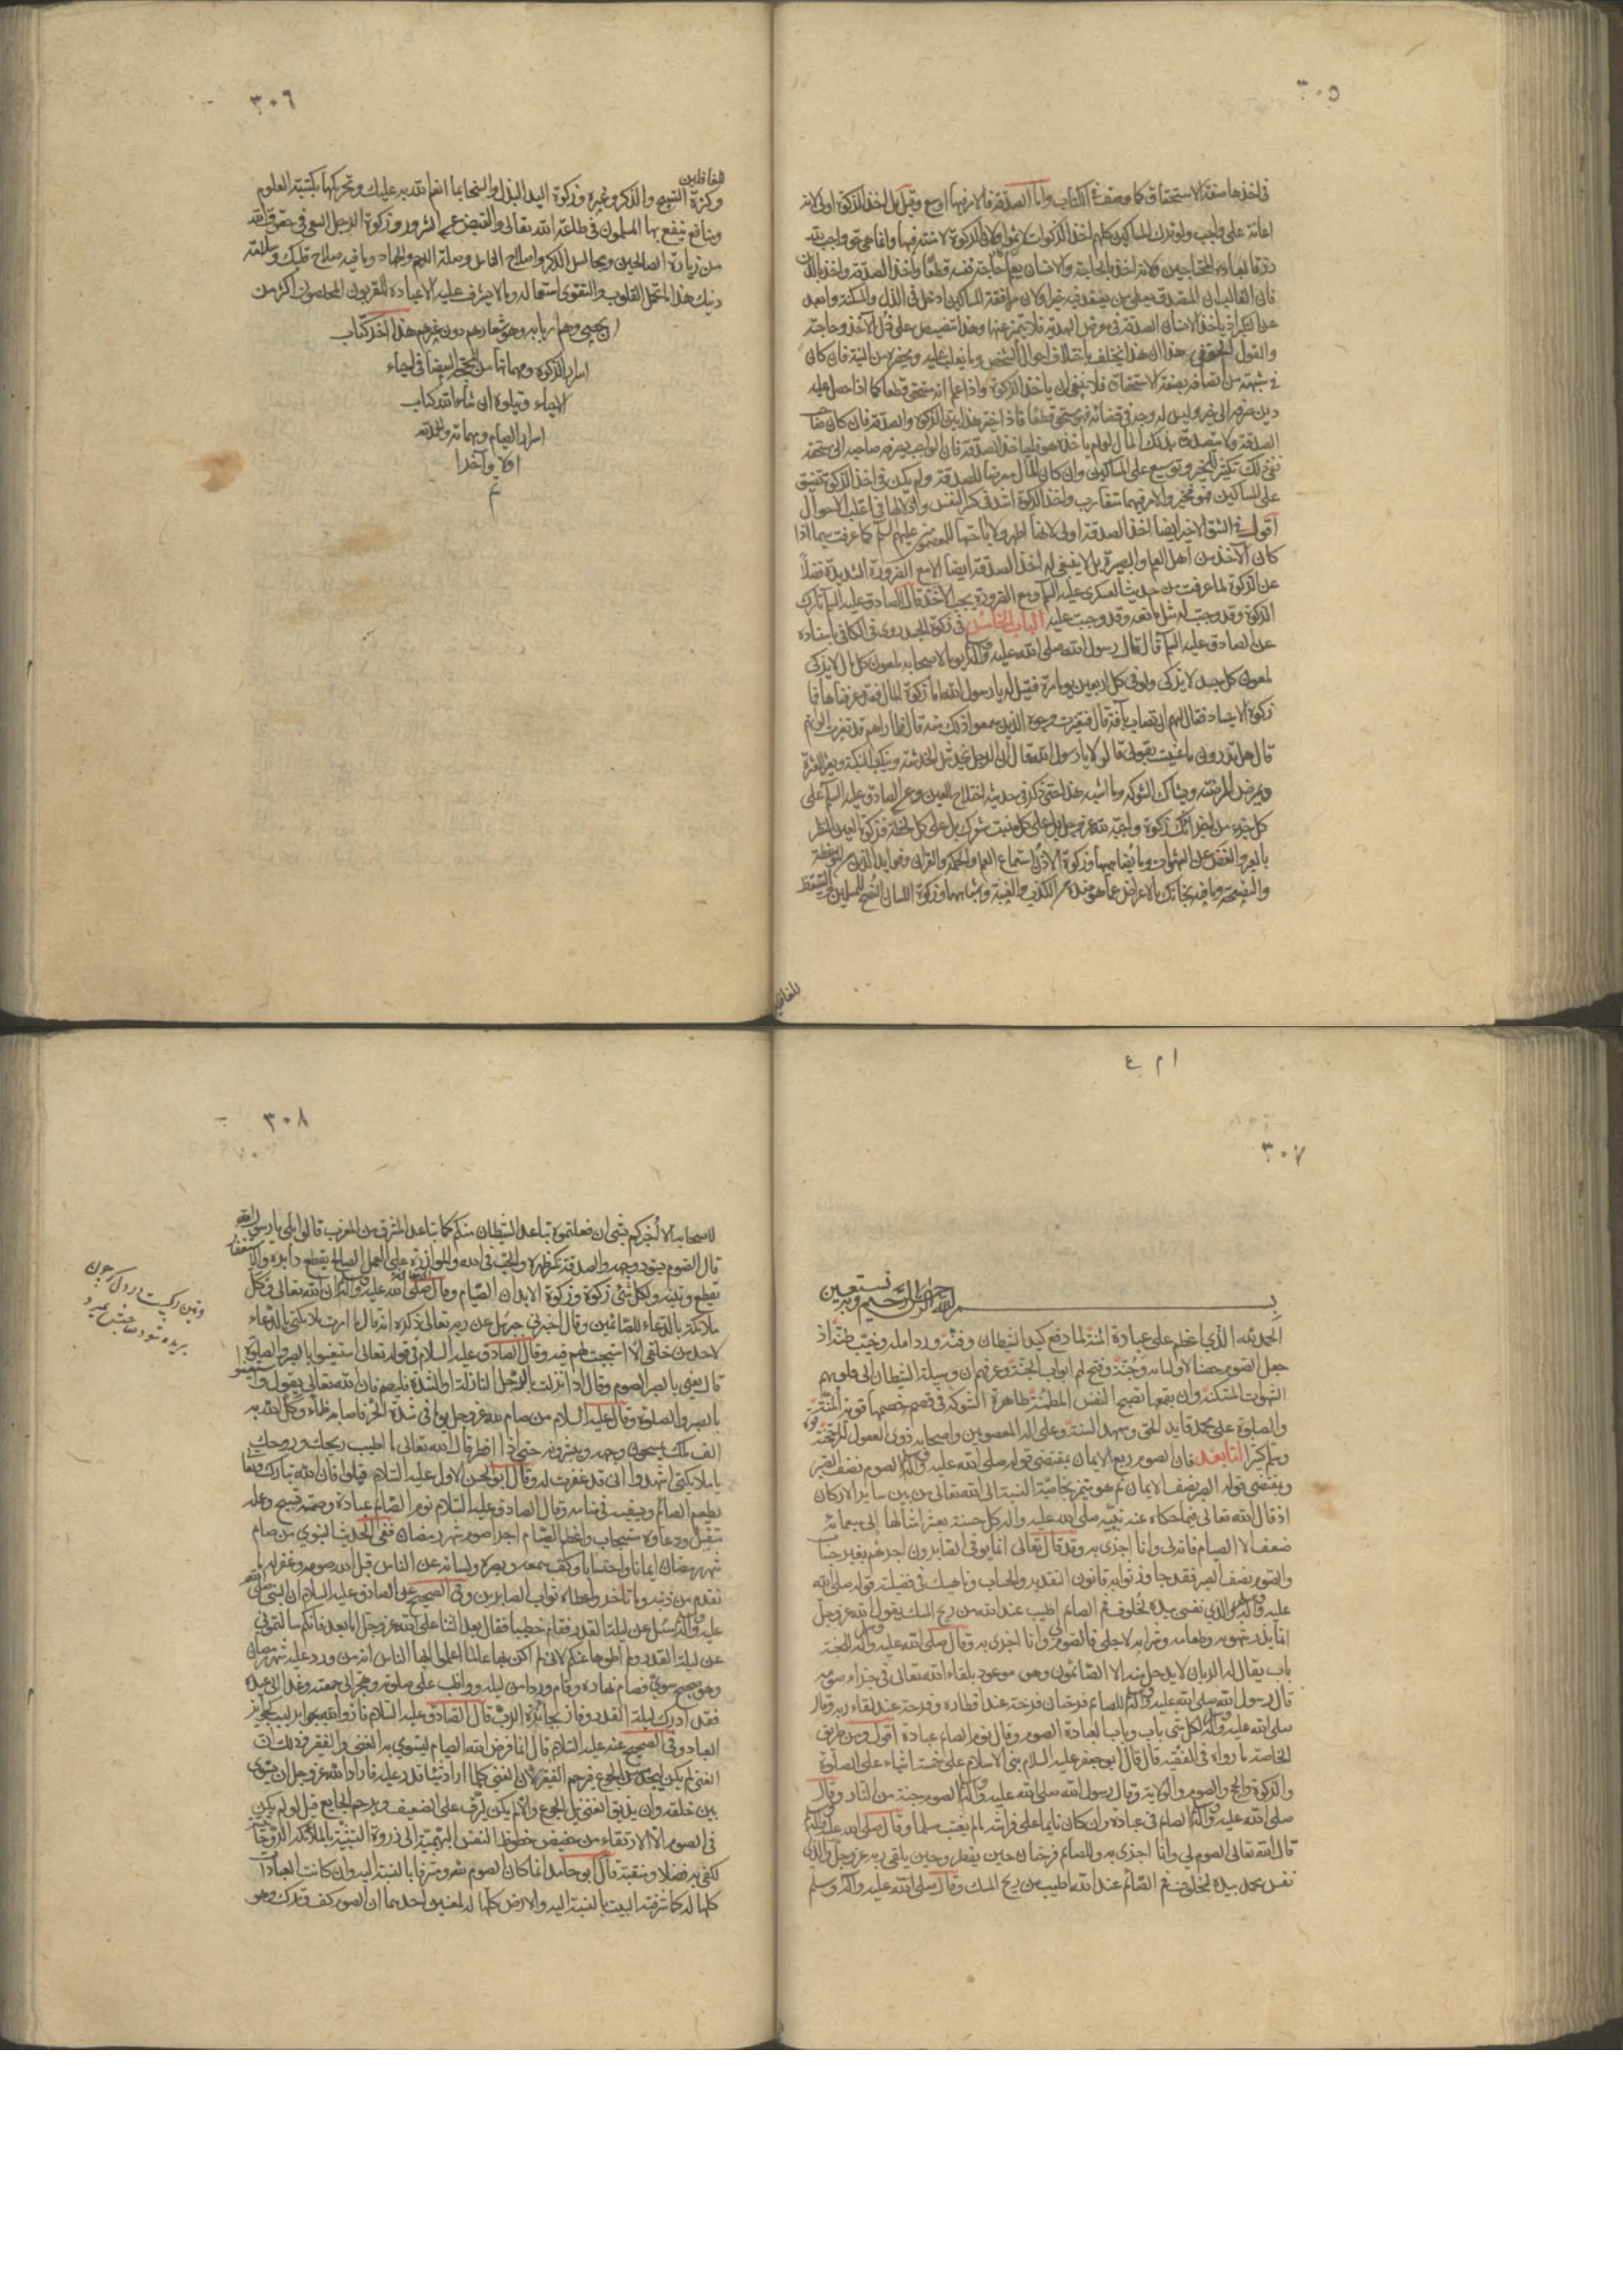 ٣٠٥
في اخذها صفة الاستحقاق كما وصف في الكتاب واما الصدقة فالامر فيها اوسع وقيل بل اخذ الزكوة اولى لانه
اعانة على واجب ولو ترك المساكين كلهم اخذ الزكوات لاثموا ولان الزكوة لا منة فيها وانما هي حق واجب لله
رزقا لعباده المحتاجين ولانه اخذ بالحاجة والانسان يعلم حاجة نفسه قطعا واخذ الصدقة اخذ بالدين
فان الغالب ان المتصدق يعطي من يعتقد فيه خيرا ولان مرافقة المساكين ادخل في الذل والمسكنة وابعد
عن التكبر اذ ياخذ الانسان الصدقة في معرض الهدية فلا تتميز عنها وهذا تنصيص على ذل الآخذ وحاجته
والقول الحق في هذا ان هذا يختلف باختلاف احوال الشخص وما يغلب عليه ويحضره من النية فان كان
في شبهة من اتصافه بصفة الاستحقاق فلا ينبغي ان ياخذ الزكوة واذا علم انه مستحق قطعا كما اذا حصل عليه
دين صرفه الى خير وليس له وجه في قضائه فهو مستحق قطعا فاذا خير هذا بين الزكوة والصدقة فان كان صاحب
الصدقة لا يتصدق بذلك المال لو لم ياخذه هو فلياخذ الصدقة فان الواجب يصرفه صاحبه الى مستحقه
ففي ذلك تكثير للخير وتوسيع على المساكين وان كان المال معرضا للصدقة ولم يكن في اخذ الزكوة تضييق
على المساكين فهو مخير والامر فيهما متقارب واخذ الزكوة اشد في كسر النفس واذلالها في اغلب الاحوال
اقول في الشق الاخير ايضا اخذ الصدقة اولى لانها اطهر ولاباحتها للمعصومين عليهم السلم كما عرفت سيما اذا
كان الآخذ من اهل العلم والبصيرة بل لا ينبغي له اخذ الصدقة ايضا الا مع الضرورة الشديدة فضلا
عن الزكوة لما عرفت من حديث العسكري عليه السلم ومع الضرورة يجب الاخذ قال الصادق عليه السلم تارك
الزكوة وقد وجبت له مثل مانعه وقد وجبت عليه الباب الخامس في زكوة الجسد روى في الكافي باسناده
عن الصادق عليه السلم قال قال رسول الله صلى الله عليه وآله يوما لاصحابه ملعون كل مال لا يزكى
ملعون كل جسد لا يزكى ولو في كل اربعين يوما مرة فقيل له يا رسول الله اما زكوة المال فقد عرفناها فما
زكوة الاجساد فقال لهم ان تصاب بآفة قال فتغيرت وجوه الذين سمعوا ذلك منه قال فلما رآهم قد تغيرت الوانهم
قال هل تدرون ما عنيت بقولي قالوا لا يا رسول الله قال ان الرجل يخدش الخدشة وينكب النكبة ويعثر العثرة
ويمرض المرضة ويشاك الشوكة وما اشبه هذا حتى ذكر في حديثه اختلاج العين وعن الصادق عليه السلم على
كل جزء من اجزائك زكوة واجبة لله عز وجل بل على كل منبت شعرك بل على كل لحظة فزكوة العين النظر
بالعبر والغض عن الشهوات وما يضاهيها وزكوة الاذن استماع العلم والحكمة والقرآن وفوايد الدين من الموعظة
والنصيحة وما فيه نجاتك بالاعراض عما هو ضده من الكذب والغيبة واشباههما وزكوة اللسان النصح للمسلمين والتيقظ
للغافلين
٣٠٦
للغافلين
وكثرة التسبيح والذكر وغيره وزكوة اليد البذل والسخا بما انعم الله به عليك وتحريكها بكتبة العلوم
ومنافع ينتفع بها المسلمون في طاعة الله تعالى والقبض عن الشرور وزكوة الرجل السعي في حقوق الله
من زيارة الصالحين ومجالس الذكر واصلاح الناس وصلة الرحم والجهاد وما فيه صلاح قلبك وسلامة
دينك هذا ما تحمل القلوب والنفوس استعماله وما لا يشرف عليه الا عباده المقربون المخلصون اكثر من
ان يحصى وهم اربابه وهو شعارهم دون غيرهم هذا آخر كتاب
اسرار الزكوة ومهماتها من المحجة البيضا في احياء
الاحياء ويتلوه ان شاء الله كتاب
اسرار الصيام ومهماته والحمد لله
اولا وآخرا
م
ا م ع
٣٠٧
بسم الله الرحمن الرحيم وبه نستعين
الحمد لله الذي اعظم على عباده المنة لما دفع كيد الشيطان وفنه ورد امله وخيب ظنه اذ
جعل الصوم حصنا لاوليائه وجنة وفتح لهم ابواب الجنة وعرفهم ان وسيلة الشيطان الى قلوبهم
الشهوات المستكنة وان بقمعها تصبح النفس المطمئنة ظاهرة الشوكة في قصم خصمها قوية المنة
والصلوة على محمد قايد الحق وممهد السنة وعلى آله المعصومين واصحابه ذوي العقول المرجحنة
وسلم كثيرا اما بعد فان الصوم ربع الايمان بمقتضى قوله صلى الله عليه وآله الصوم نصف الصبر
وبمقتضى قوله الصبر نصف الايمان ثم هو متميز بخاصية النسبة الى الله تعالى من بين ساير الاركان
اذ قال الله تعالى فيما حكاه عنه نبيه صلى الله عليه وآله كل حسنة بعشر امثالها الى سبعمائة
ضعف الا الصيام فانه لي وانا اجزى به وقد قال تعالى انما يوفى الصابرون اجرهم بغير حساب
والصوم نصف الصبر فقد جاوز ثوابه قانون التقدير والحساب وناهيك في فضيلته قوله صلى الله
عليه وآله والذي نفسي بيده لخلوف فم الصائم اطيب عند الله من ريح المسك يقول الله عز وجل
انما يذر شهوته وطعامه وشرابه لاجلي فالصوم لي وانا اجزى به وقال صلى الله عليه وآله للجنة
باب يقال له الريان لا يدخل منه الا الصائمون وهو موعود بلقاء الله تعالى في جزاء صومه
قال رسول الله صلى الله عليه وآله للصائم فرحتان فرحة عند افطاره وفرحة عند لقاء ربه وقال
صلى الله عليه وآله لكل شى باب وباب العبادة الصوم وقال نوم الصائم عبادة اقول ومن طريق
الخاصة ما رواه في الفقيه قال قال ابو جعفر عليه السلام بني الاسلام على خمسة اشياء على الصلوة
والزكوة والحج والصوم والولاية وقال رسول الله صلى الله عليه وآله الصوم جنة من النار وقال
صلى الله عليه وآله الصائم في عبادة وان كان نايما على فراشه ما لم يغتب مسلما وقال صلى الله عليه وآله
قال الله تعالى الصوم لي وانا اجزى به وللصائم فرحتان حين يفطر وحين يلقى ربه عز وجل والذي
نفس محمد بيده لخلوف فم الصائم عند الله اطيب من ريح المسك وقال صلى الله عليه وآله وسلم
٣٠٨
لاصحابه الا اخبركم بشى ان فعلتموه تباعد الشيطان منكم كما تباعد المشرق من المغرب قالوا بلى يا رسول الله
قال الصوم يسود وجهه والصدقة تكسر ظهره والحب في الله والموازرة على العمل الصالح يقطع دابره والاستغفار
يقطع وتينه ولكل شى زكوة وزكوة الابدان الصيام وقال صلى الله عليه وآله ان الله تعالى وكل
ملائكة بالدعاء للصائمين وقال اخبرني جبرئيل عن ربه تعالى ذكره انه قال ما امرت ملائكتي بالدعاء
لاحد من خلقي الا استجبت لهم فيه وقال الصادق عليه السلام في قوله تعالى استعينوا بالصبر والصلوة
قال يعني بالصبر الصوم وقال اذا نزلت بالرجل النازلة او الشدة فليصم فان الله تعالى يقول واستعينوا
بالصبر والصلوة وقال عليه السلام من صام لله عز وجل يوما في شدة الحر فاصابه ظماء وكل الله به
الف ملك يمسحون وجهه ويبشرونه حتى اذا افطر قال الله تعالى ما اطيب ريحك وروحك
يا ملائكتي اشهدوا اني قد غفرت له وقال ابو الحسن الاول عليه السلام قيلوا فان الله تبارك وتعالى
يطعم الصائم ويسقيه في منامه وقال الصادق عليه السلام نوم الصائم عبادة وصمته تسبيح وعمله
متقبل ودعاؤه مستجاب واعظم الصيام اجرا صوم شهر رمضان ففي الحديث النبوي من صام
شهر رمضان ايمانا واحتسابا وكف سمعه وبصره ولسانه عن الناس قبل الله صومه وغفر له ما
تقدم من ذنبه وما تاخر واعطاه ثواب الصابرين وفي الصحيح عن الصادق عليه السلام ان النبي صلى الله
عليه وآله سئل عن ليلة القدر فقام خطيبا فقال بعد الثنا على الله عز وجل اما بعد فانكم سالتموني
عن ليلة القدر ولم اطوها عنكم لاني لم اكن بها عالما اعلموا ايها الناس انه من ورد عليه شهر رمضان
وهو صحيح سوي فصام نهاره وقام وردا من ليله وواظب على صلوته وهجر الى جمعته وغدا الى عيده
فقد ادرك ليلة القدر وفاز بجائزة الرب قال الصادق عليه السلام فازوا والله بجوايز ليست كجوايز
العباد وفي الصحيح عنه عليه السلام قال انما فرض الله الصيام ليستوي به الغني والفقير وذلك ان
الغني لم يكن ليجد مس الجوع فيرحم الفقير لان الغني كلما اراد شيئا قدر عليه فاراد الله عز وجل ان يسوي
بين خلقه وان يذيق الغني نيل الجوع والالم ليرق على الضعيف ويرحم الجايع قيل لو لم يكن
في الصوم الا الارتقاء من حضيض حظوظ النفس البهيمية الى ذروة التشبه بالملائكة الروحانية
لكفى به فضلا ومنقبة قال ابو حامد انما كان الصوم مشرفا بالنسبة اليه وان كانت العبادات
كلها له كما شرف البيت بالنسبة اليه والارض كلها له لمعنيين احدهما ان الصوم كف وترك وهو
وتين ركيست در دل كه چون
بريده شود صاحبش بميرد